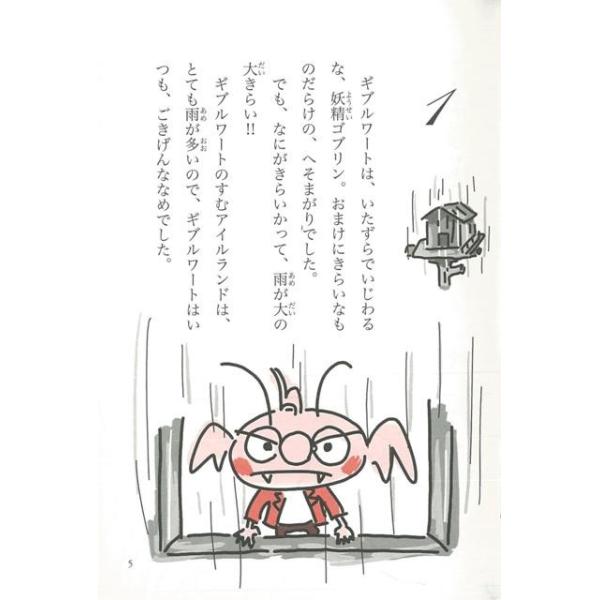 1
ギブルワートは、いたずらでいじわる
な、妖精ゴブリン。おまけにきらいなも
のだらけの、へそまがりでした。
でも、なにがきらいかって、雨が大の
大きらい!!
ギブルワートのすむアイルランドは、
とても雨が多いので、ギブルワートはい
つも、ごきげんななめでした。
5